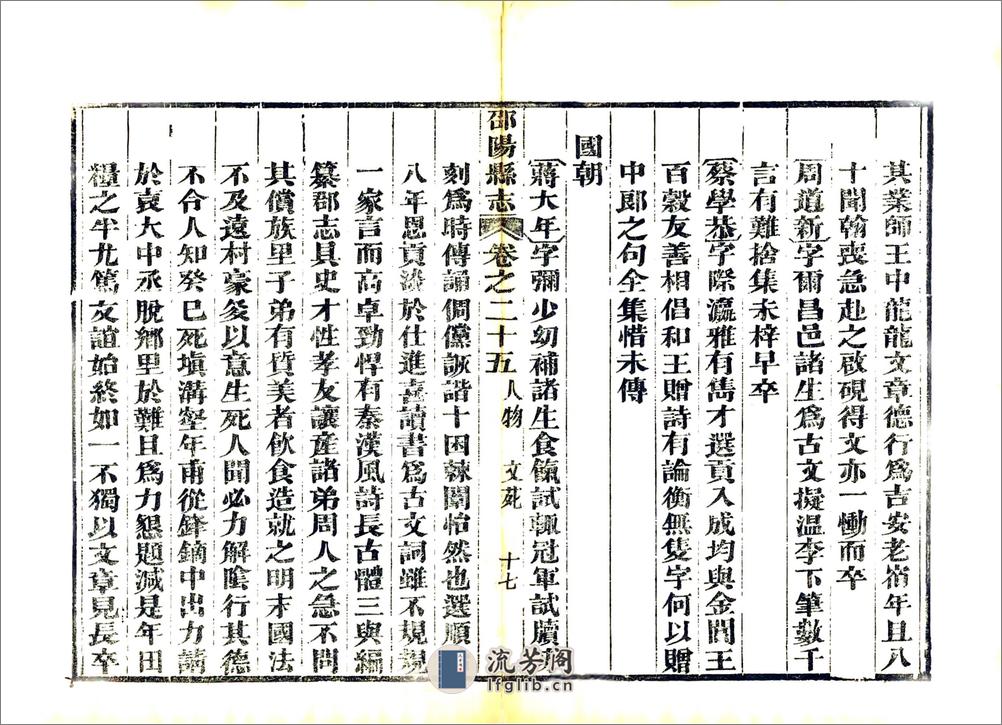 其業師王中龍龍文章德行爲吉安老宿年且八
十聞翰喪急赴之啟硯得文亦一慟而卒
周道新字爾昌邑諸生爲古文擬溫李下筆數千
言有難捨集未梓早卒
蔡學恭字際瀛雅有雋才選貢入成均與金閶王
百穀友善相倡和王贈詩有論衡無隻字何以贈
中郎之句全集惜未傳
國朝
蔣大年字彌少幼補諸生食餼試輒冠軍試牘
邵陽縣志 卷之二十五 人物 文苑 十七
刻爲時傳誦倜儻詼諧十困棘闈怡然也選順
八年恩貢淡於仕進喜讀書爲古文詞雖不規規
一家言而高卓勁悍有秦漢風詩長古體三與編
纂郡志具史才性孝友讓產諸弟周人之急不問
其償族里子弟有質美者飲食造就之明末國法
不及遠村豪多以意生死人聞必力解陰行其德
不令人知癸巳死塡溝壑年甫從鋒鏑中出力請
於袁大中丞脫鄉里於難且爲力懇題減是年田
糧之半尤篤友誼始終如一不獨以文章見長卒
流芳閣
lfglib.cn